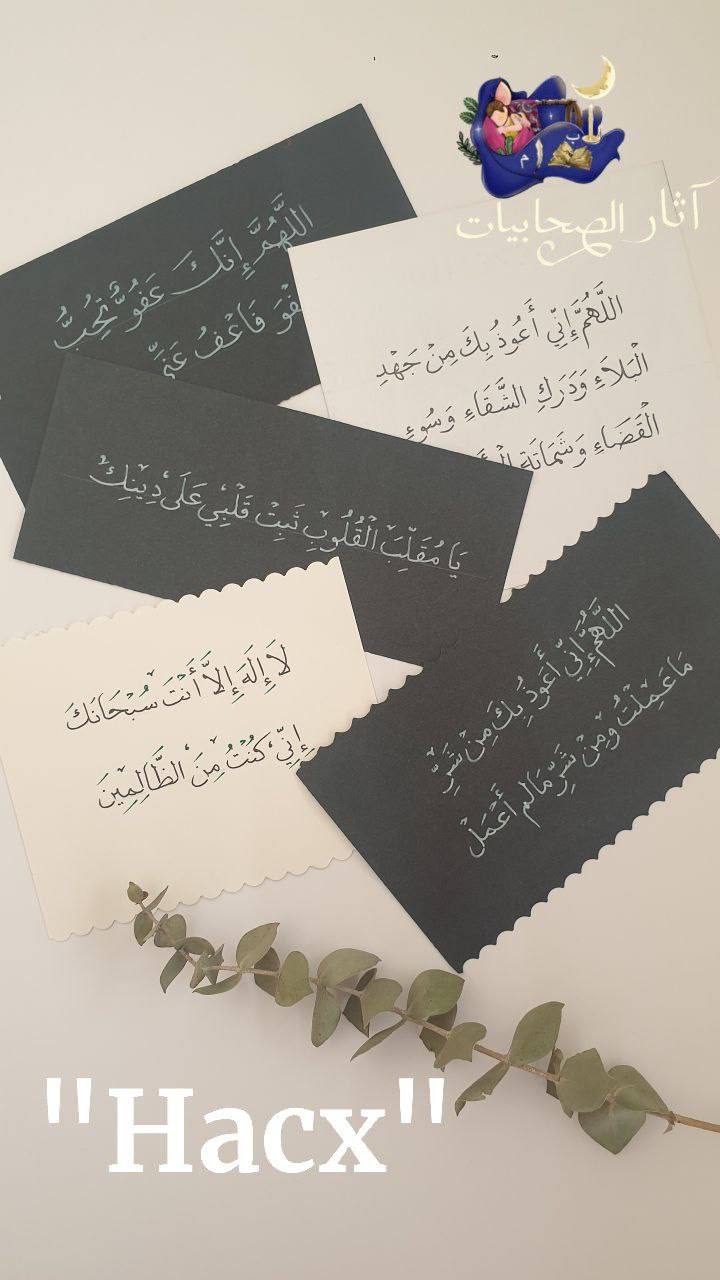 آثار الصحابيات
اللَّهُمَّ إِنَّكَ عَفُوٌّ تُحِبُّ
فَاعْفُ عَنِّي
اللَّهُمَّ إِنِّي أَعُوذُ بِكَ مِنْ جَهْدِ
الْبَلَاءِ وَدَرَكِ الشَّقَاءِ وَسُوءِ
الْقَضَاءِ وَشَمَاتَةِ
يَا مُقَلِّبَ الْقُلُوبِ ثَبِتْ قَلْبِي عَلَى دِينِكْ
لَا إِلَهَ إِلَّا أَنْتَ سُبْحَانَكَ
إِنِّي كُنْتُ مِنَ الظَّالِمِينَ
اللَّهُمَّ إِنِّي أَعُوذُ بِكَ مِنْ شَرِّ
مَا عَمِلْتُ وَمِنْ شَرِّ مَا لَمْ أَعْمَلْ
"Насх"